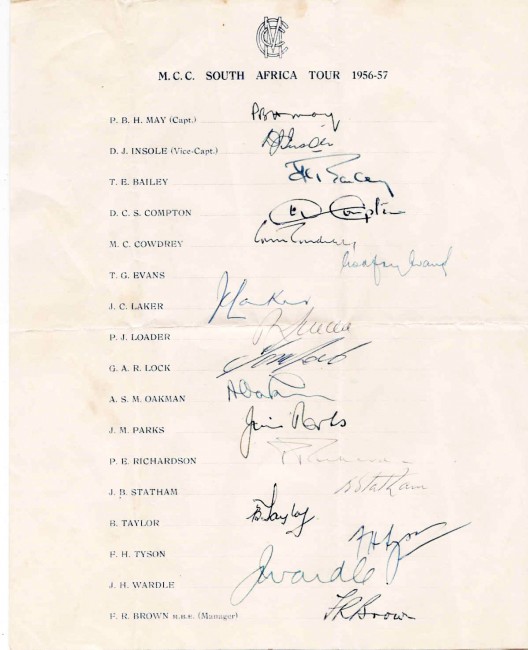 M.C.C. SOUTH AFRICA TOUR 1956-57
P. B. H. MAY (Capt.) P B H May
D. J. INSOLE (Vice-Capt.) D J Insole
T. E. BAILEY T E Bailey
D. C. S. COMPTON D Compton
M. C. COWDREY Colin Cowdrey
T. G. EVANS Godfrey Evans
J. C. LAKER J C Laker
P. J. LOADER
G. A. R. LOCK Tony Lock
A. S. M. OAKMAN A Oakman
J. M. PARKS Jim Parks
P. E. RICHARDSON P Richardson
J. B. STATHAM B Statham
B. TAYLOR B. Taylor
F. H. TYSON F H Tyson
J. H. WARDLE J Wardle
F. R. BROWN M.B.E. (Manager) F R Brown